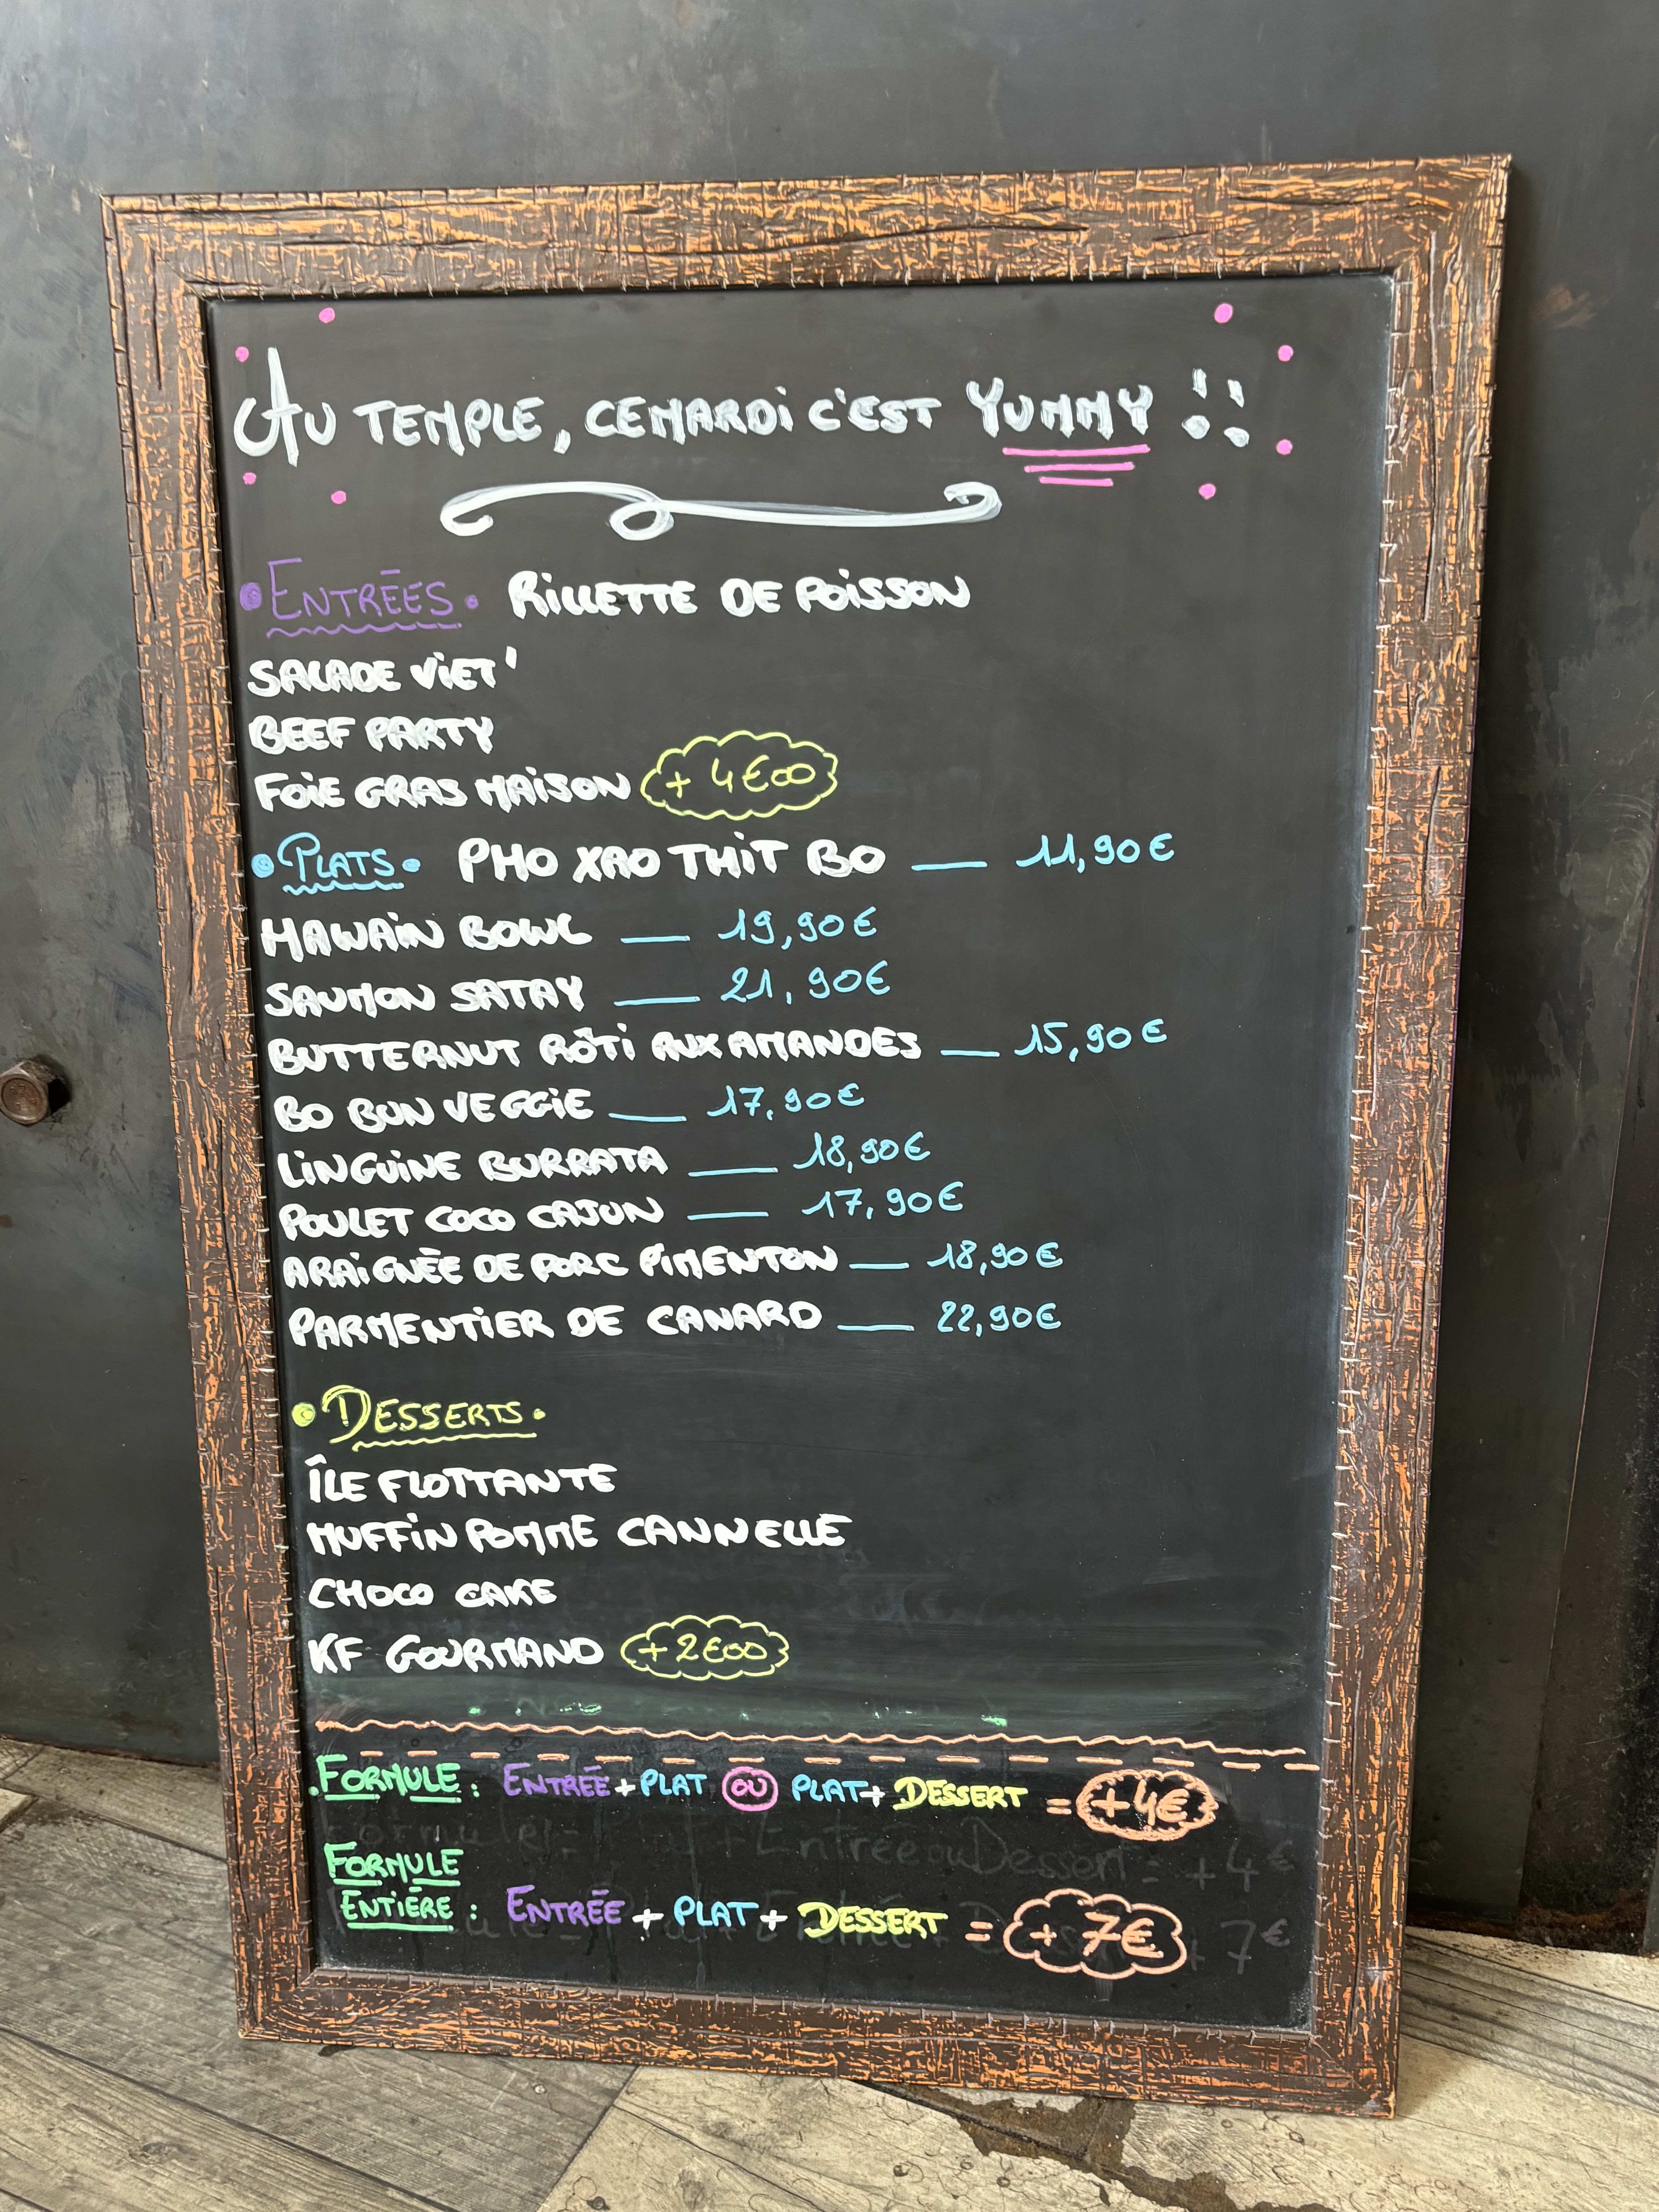 AU TEMPLE, CE MARDI C'EST YUMMY !!
• ENTRÉES • RILLETTE DE POISSON
SALADE VIET'
BEEF PARTY
FOIE GRAS MAISON + 4€00
• PLATS • PHO XAO THIT BO — 11,90€
HAWAIN BOWL — 19,90€
SAUMON SATAY — 21,90€
BUTTERNUT RÔTI AUX AMANDES — 15,90€
BO BUN VEGGIE — 17,90€
LINGUINE BURRATA — 18,90€
POULET COCO CAJUN — 17,90€
ARAIGNÉE DE PORC PIMENTON — 18,90€
PARMENTIER DE CANARD — 22,90€
• DESSERTS •
ÎLE FLOTTANTE
MUFFIN POMME CANNELLE
CHOCO CAKE
KF GOURMAND + 2€00
• FORMULE : ENTRÉE + PLAT OU PLAT + DESSERT = +4€
Entrée ou Dessert = +4€
FORMULE
ENTIÈRE : ENTRÉE + PLAT + DESSERT = + 7€
+ 7€